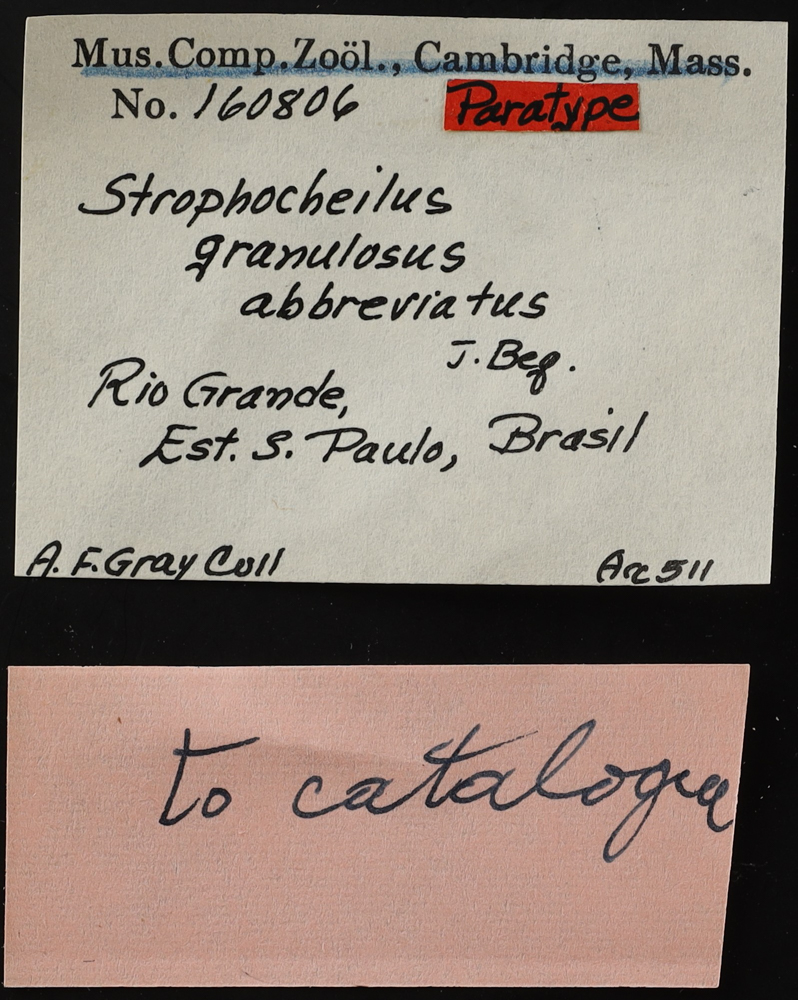 Mus.Comp.Zoöl., Cambridge, Mass.
No. 160806 Paratype
Strophocheilus
granulosus
abbreviatus
J. Beq.
Rio Grande,
Est. S. Paulo, Brasil
A. F. Gray Coll Ac 511
to catalogue